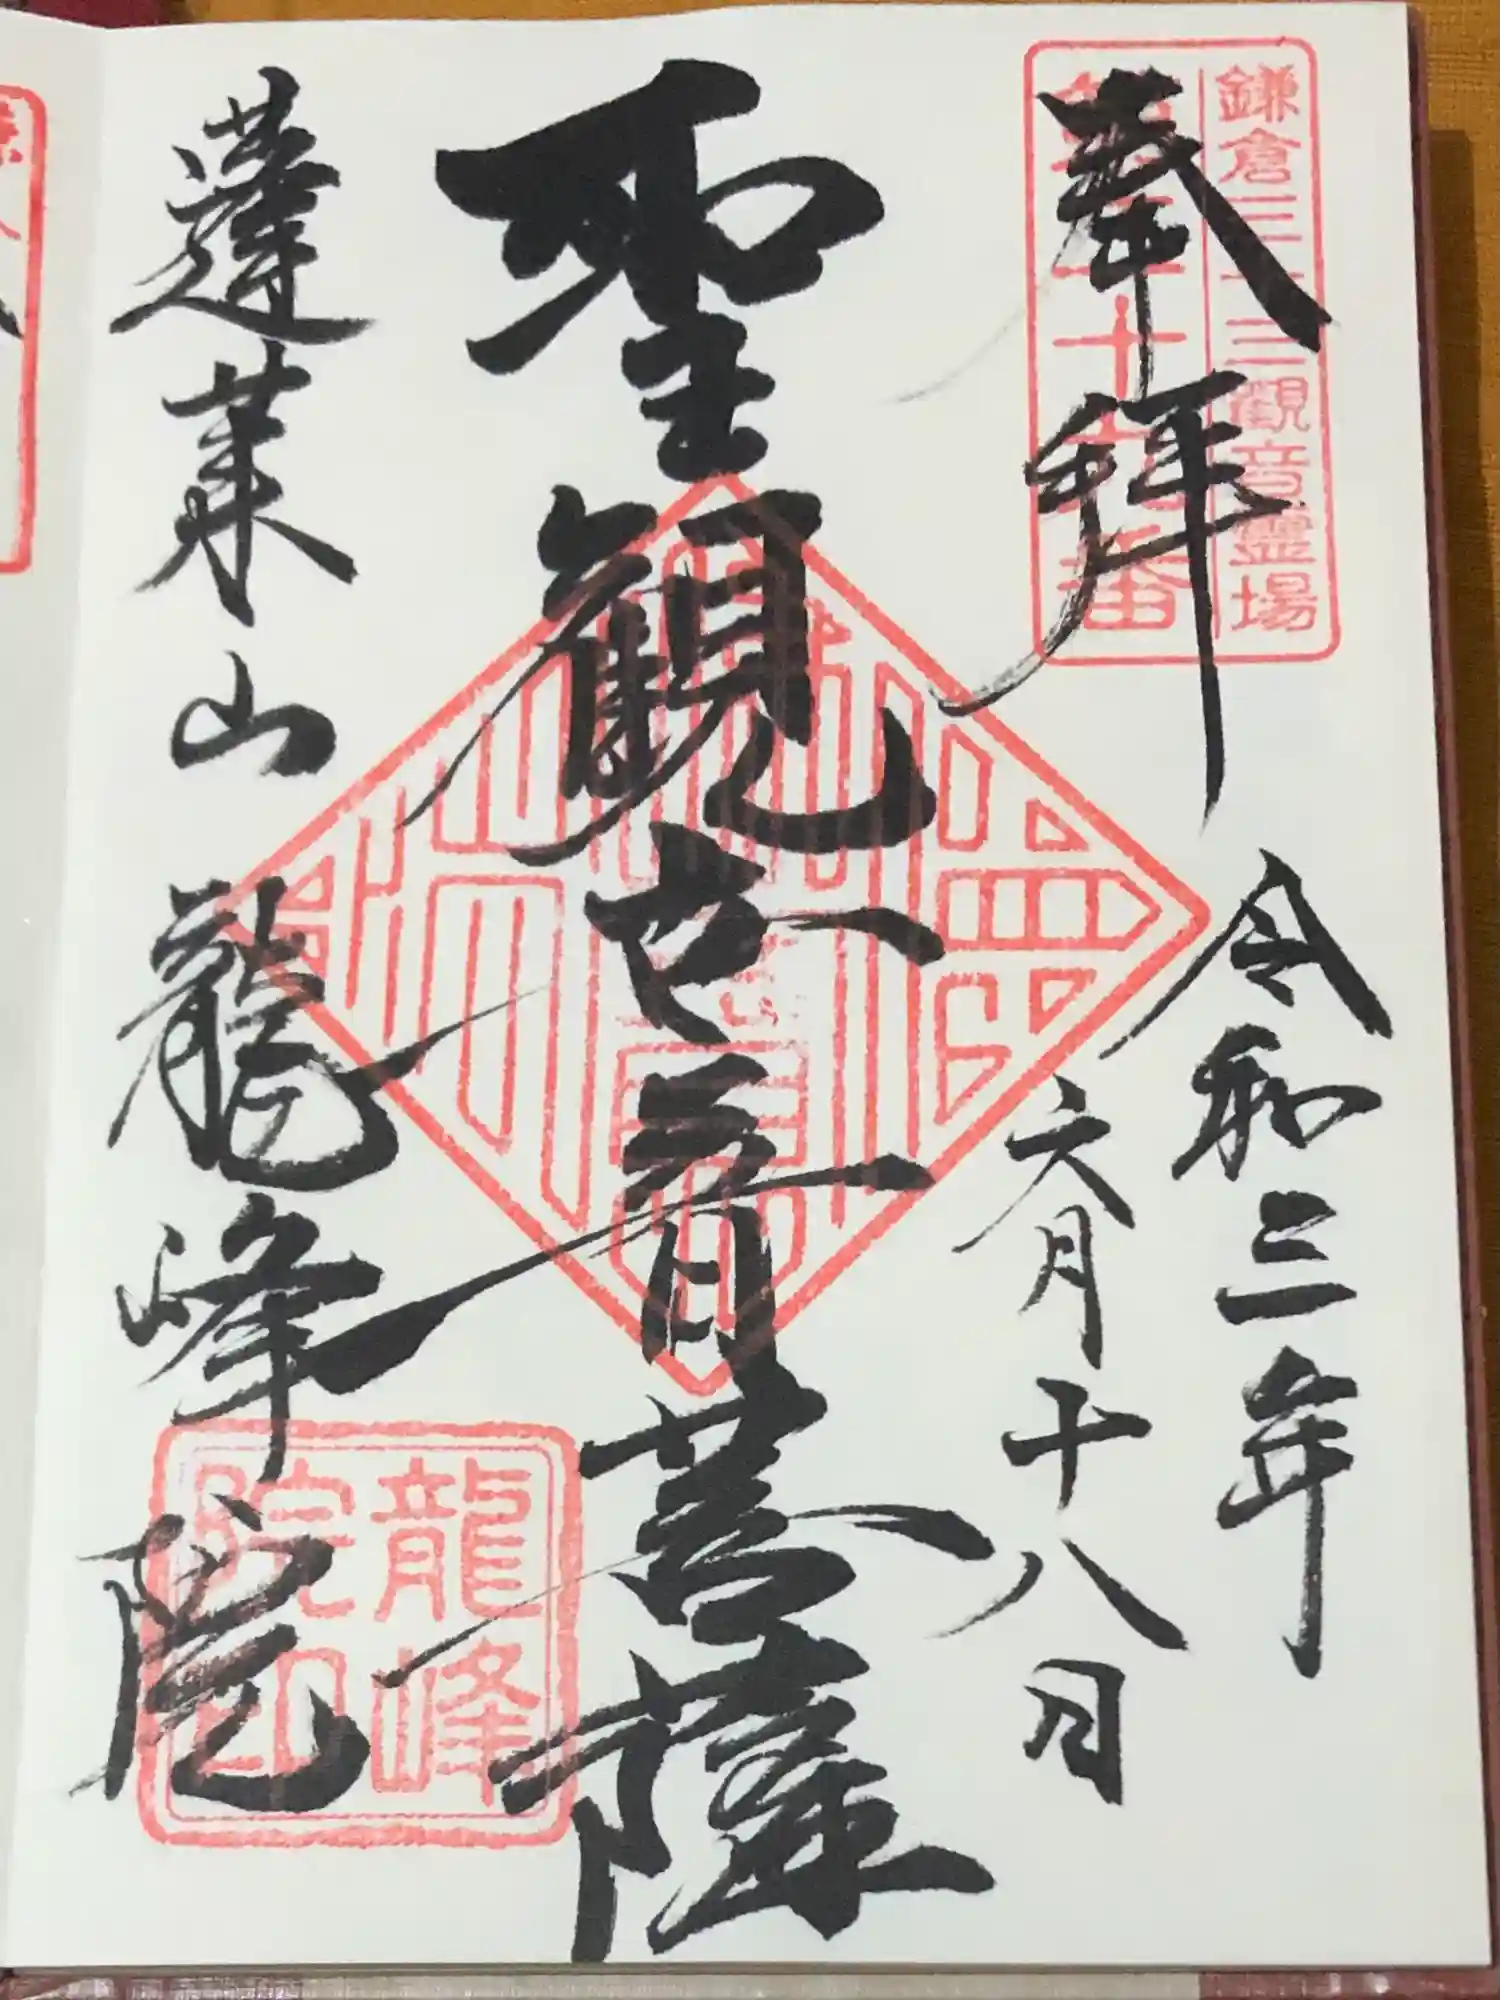 鎌倉三十三観音霊場
奉拝
令和三年
六月十八日
聖観世音菩薩
蓬莱山 龍峰院
龍峰
院印